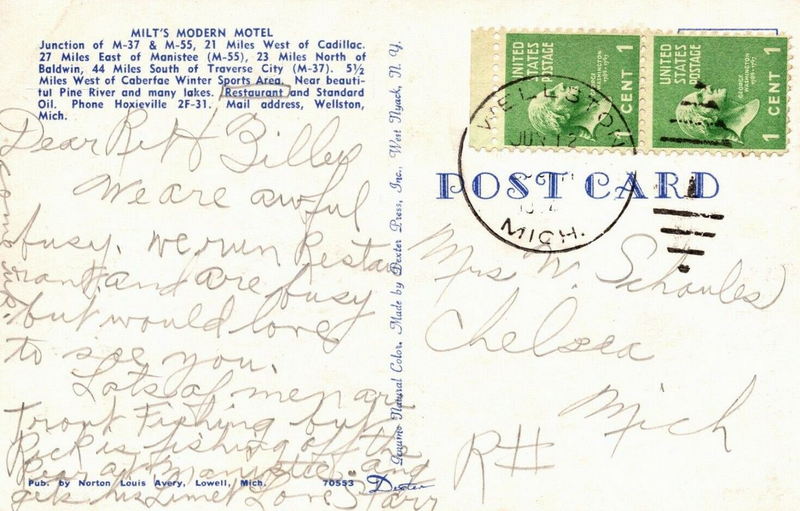 MILT'S MODERN MOTEL
Junction of M-37 & M-55, 21 Miles West of Cadillac.
27 Miles East of Manistee (M-55), 23 Miles North of
Baldwin, 44 Miles South of Traverse City (M-37). 5½
Miles West of Caberfae Winter Sports Area. Near beauti-
ful Pine River and many lakes. Restaurant and Standard
Oil. Phone Hoxieville 2F-31. Mail address, Wellston,
Mich.
Dear
We are awful
busy. We run Resta
rant and are busy
but would love
to see you.
Lots of men are
trout Fishing but
is fishing off the
Pear at Manistee and
gets his Limet Love Starr
Pub. by Norton Louis Avery, Lowell, Mich.
70553
Dexter
Genuine Natural Color. Made by Dexter Press, Inc., West Nyack, N. Y.
UNITED
STATES
POSTAGE
GEORGE
WASHINGTON
1 CENT 1
UNITED
STATES
POSTAGE
GEORGE
WASHINGTON
1 CENT 1
WELLSTON
JUN 12
MICH.
POST CARD
Mrs W.
Chelsea
Mich